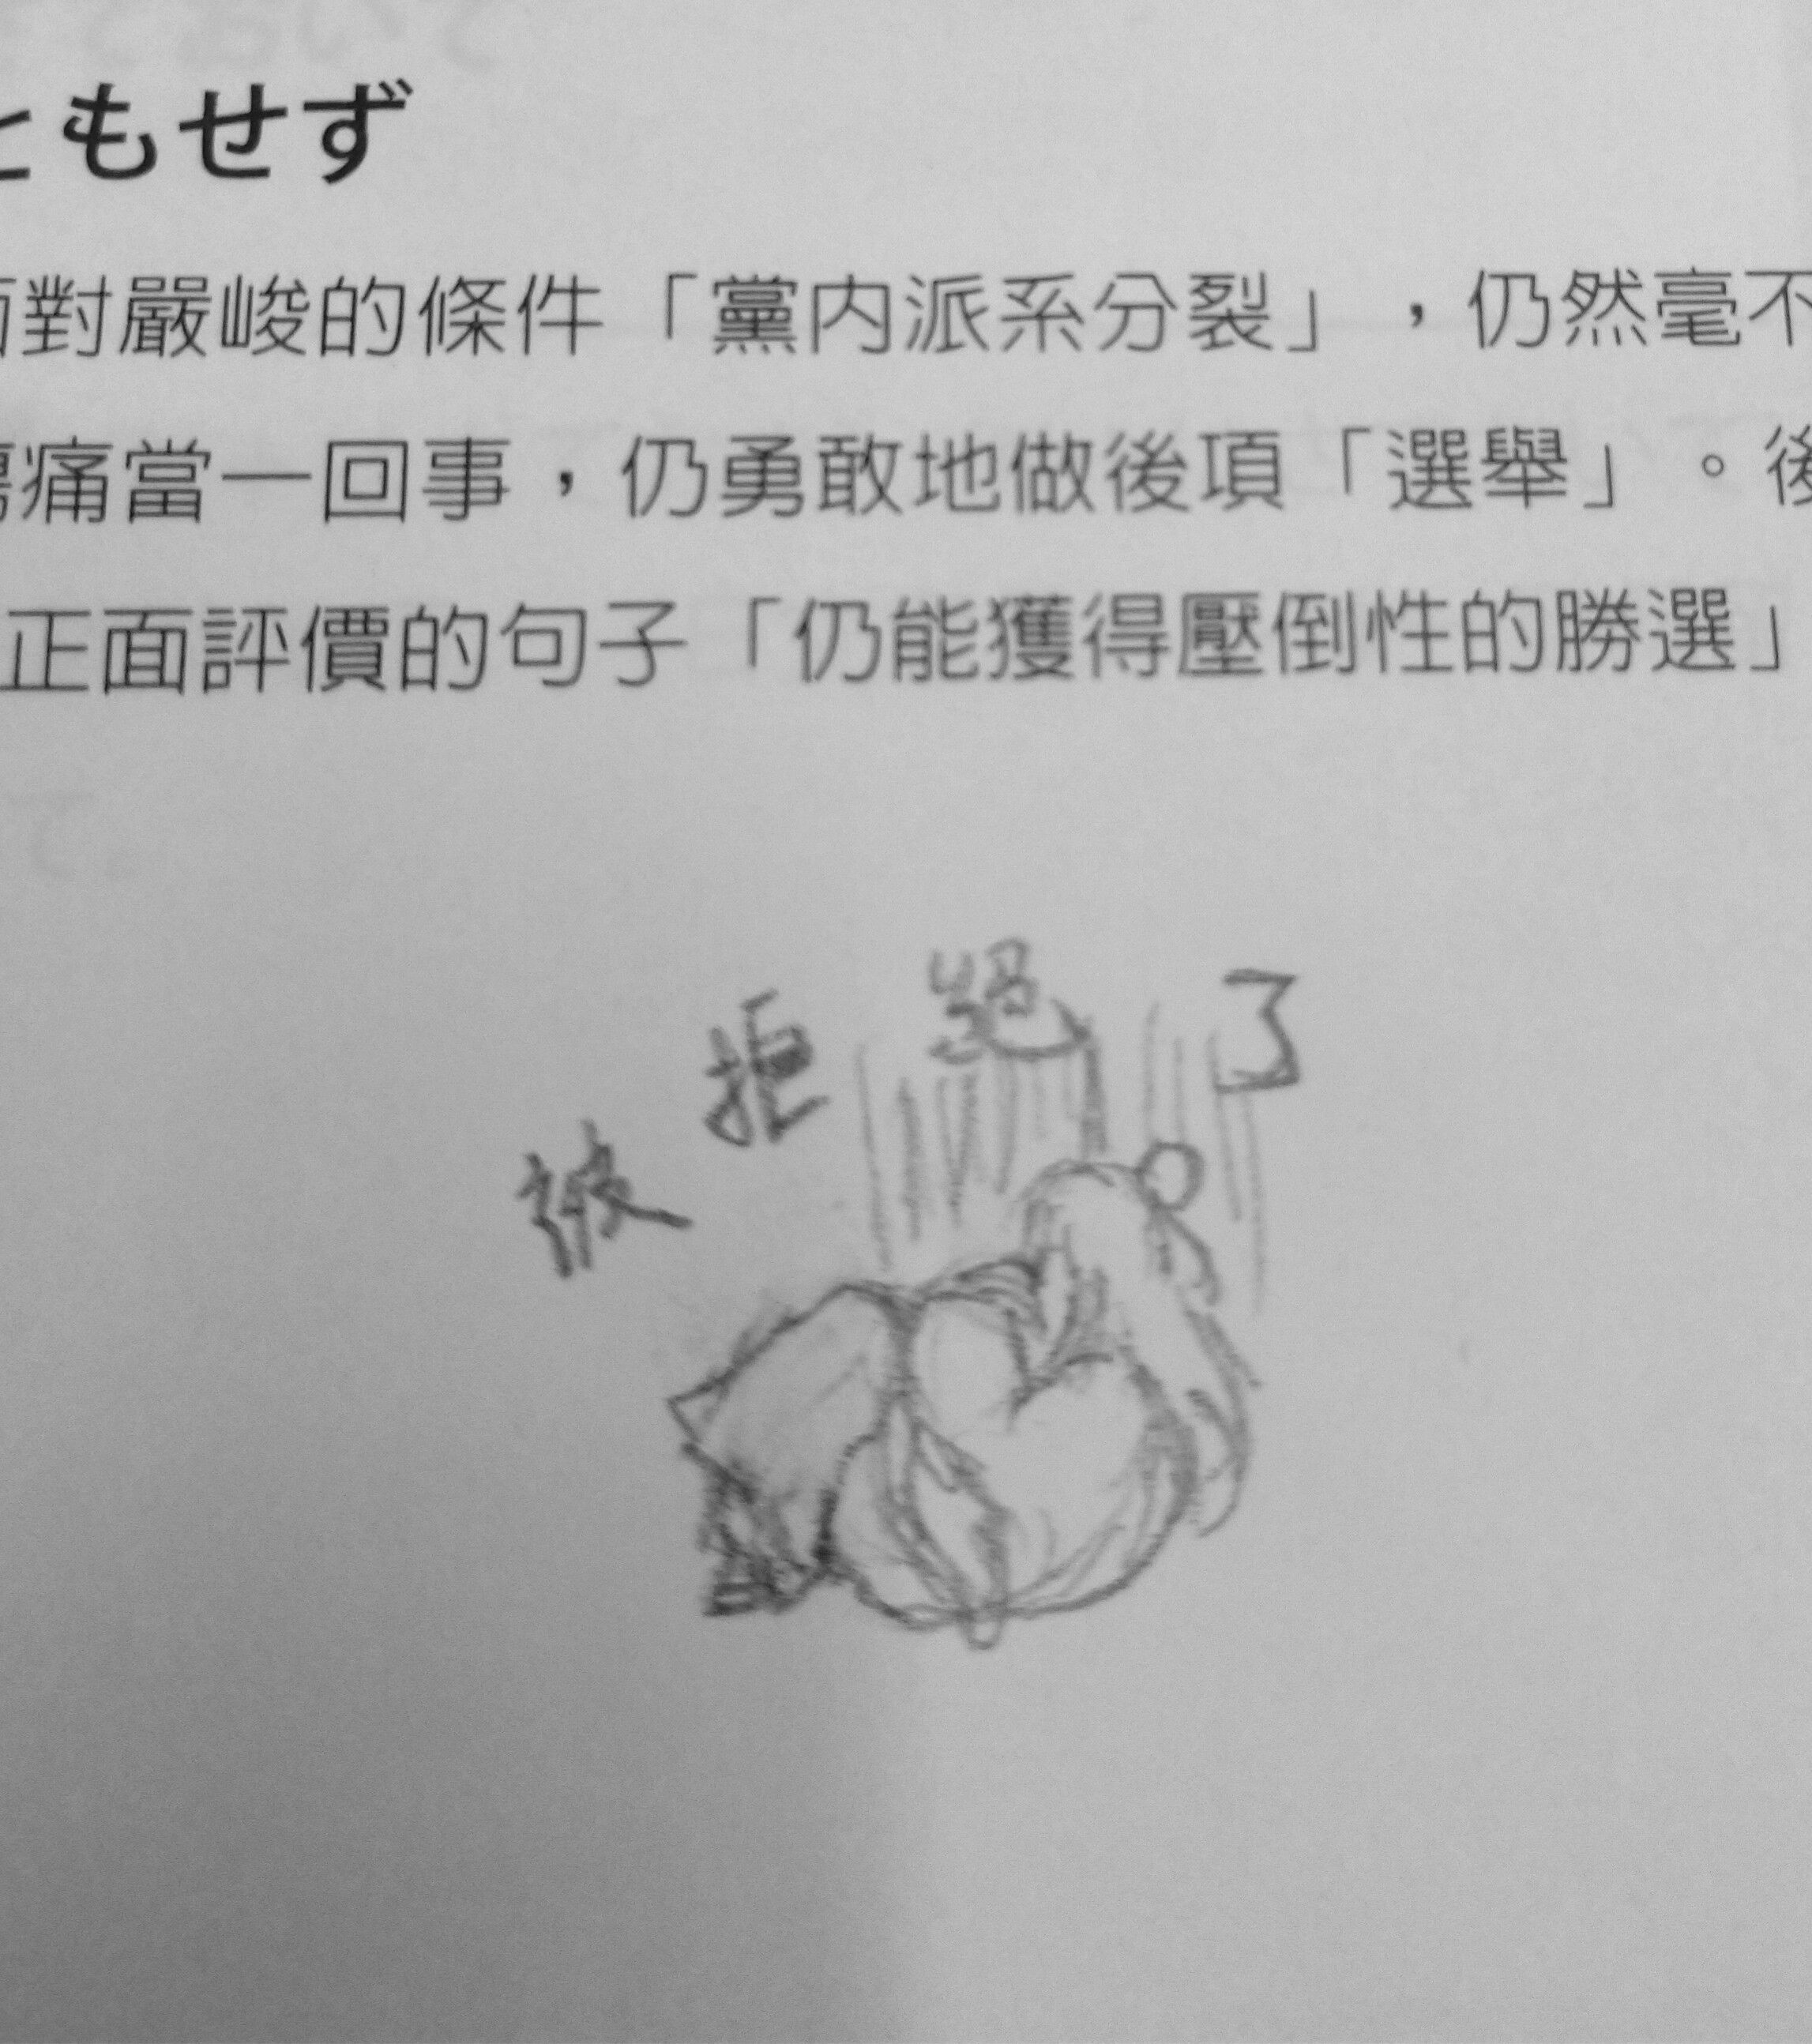 ともせず
面對嚴峻的條件「黨內派系分裂」，仍然毫不
傷痛當一回事，仍勇敢地做後項「選舉」。後
正面評價的句子「仍能獲得壓倒性的勝選」
被拒絕了